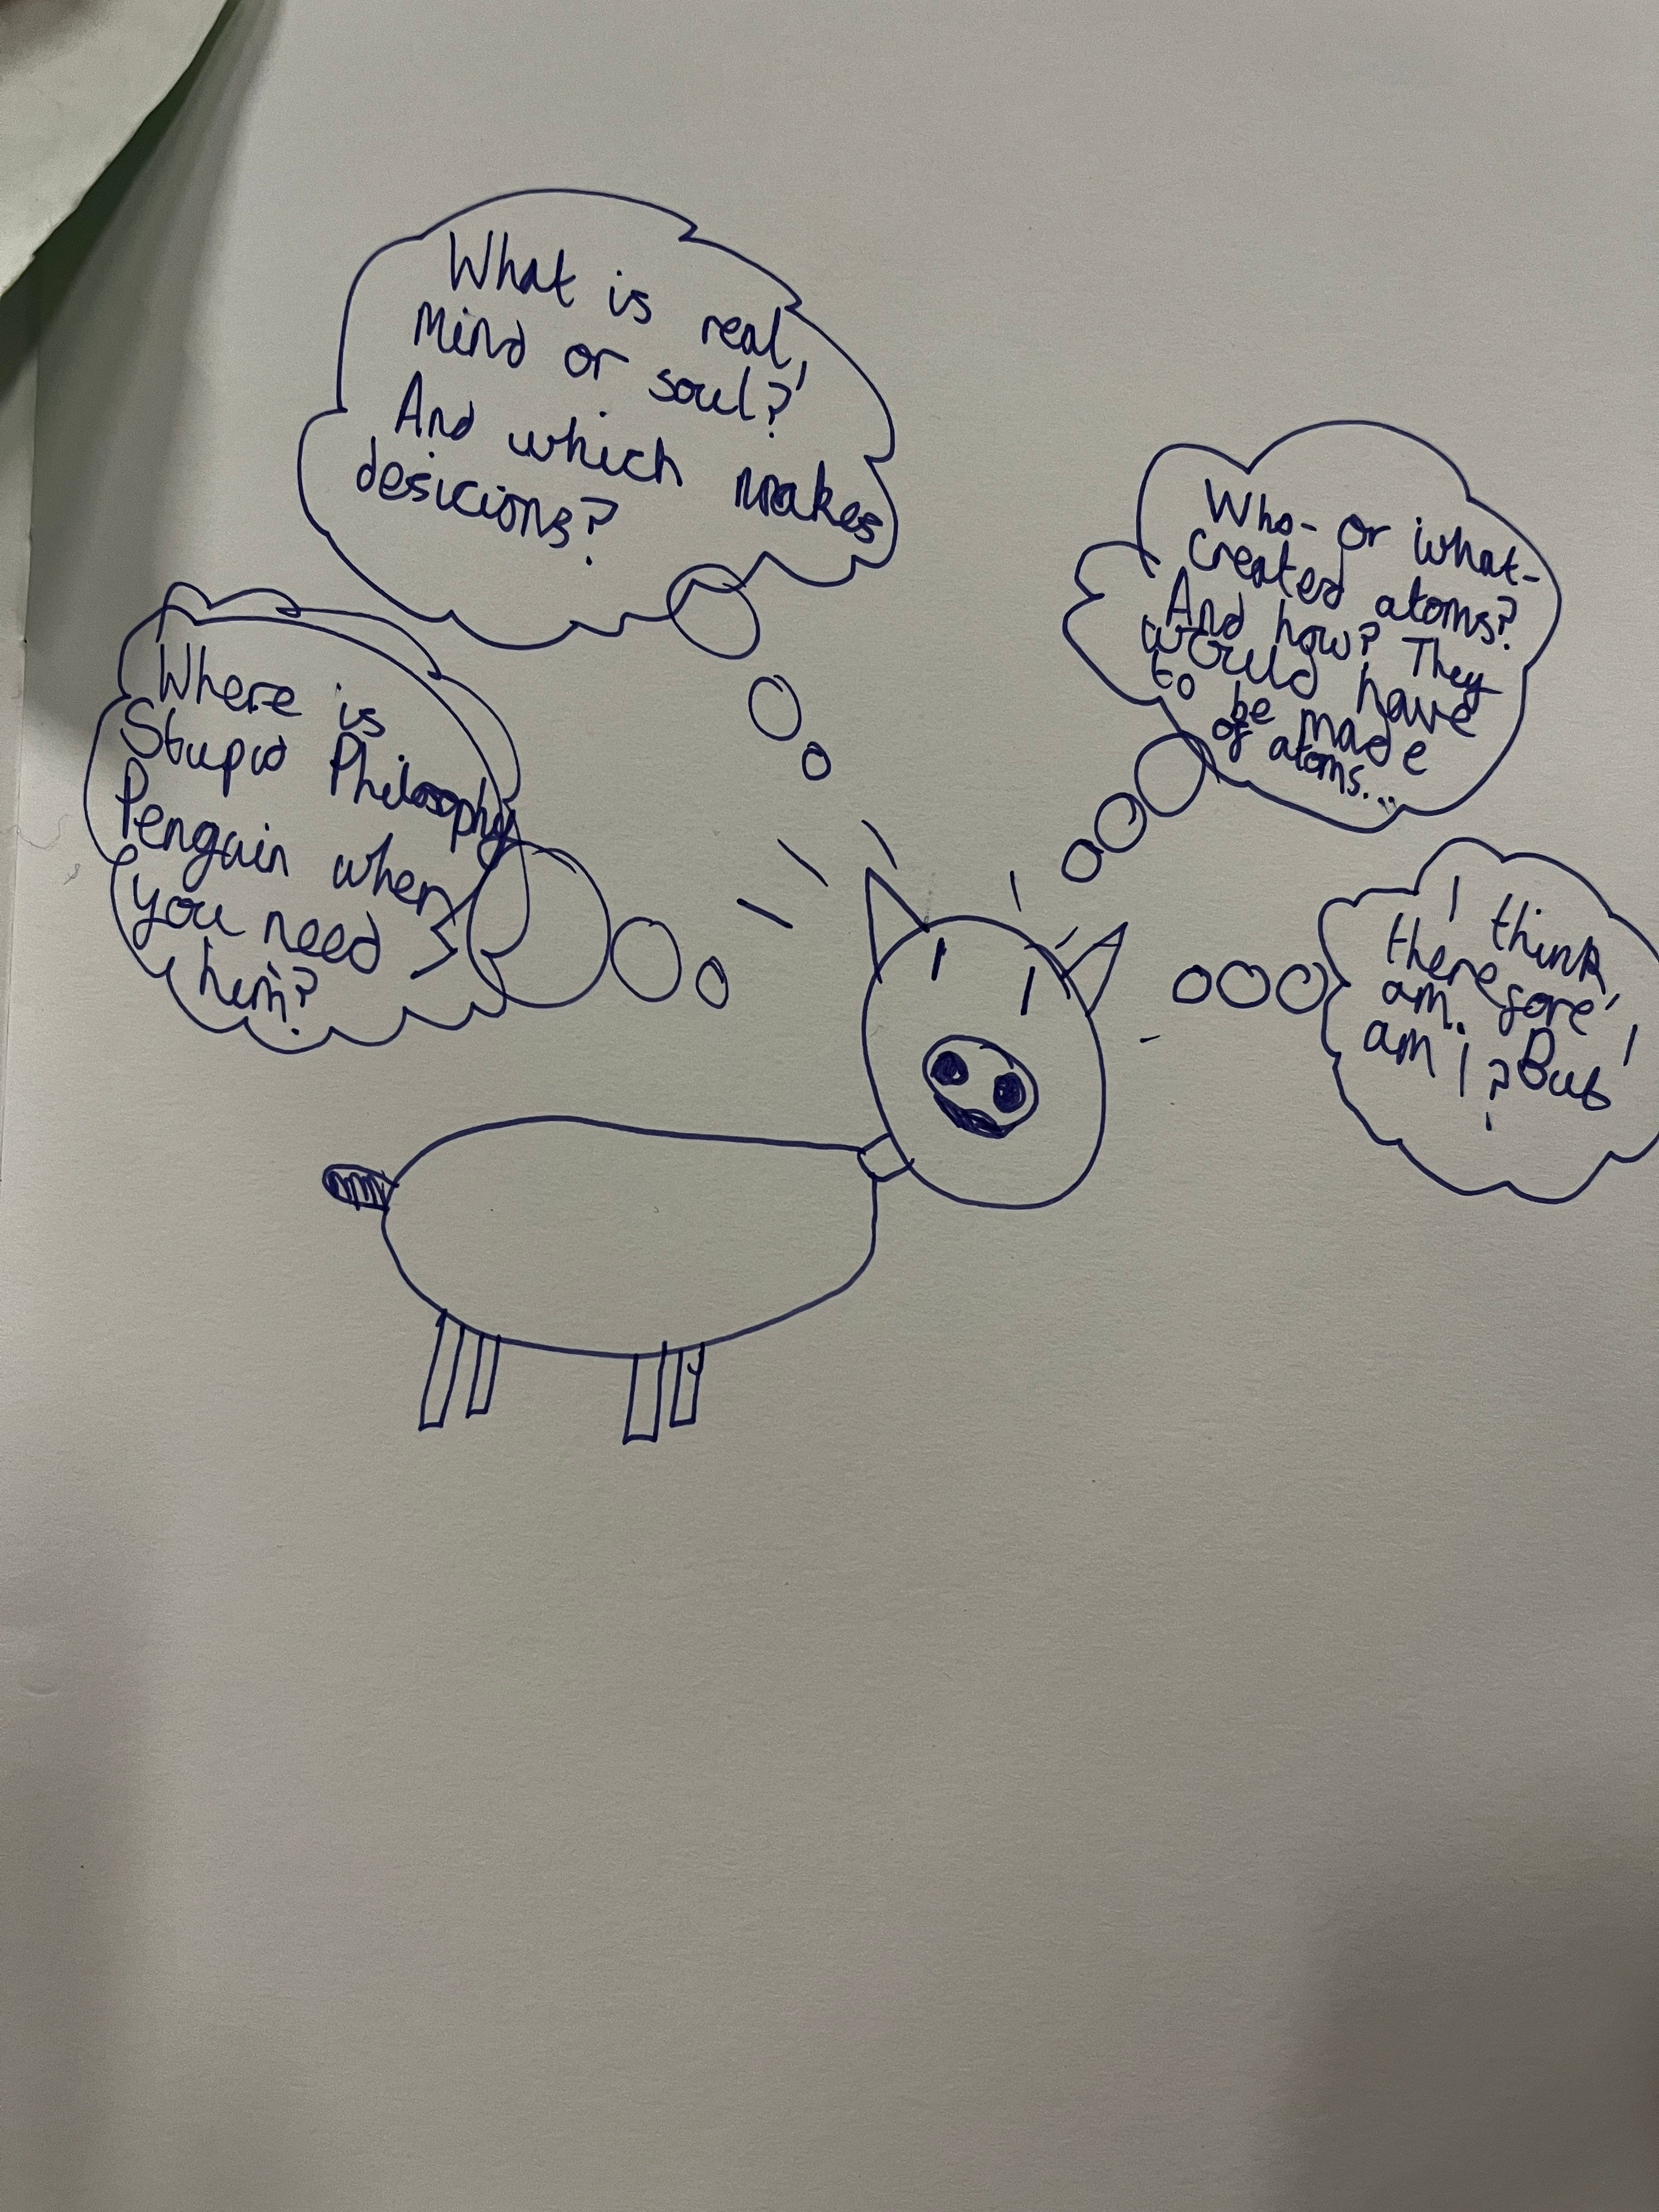 What is real,
mind or soul?
And which makes
desicions?
Where is
Stupid Philosophy
Penguin when
you need
him?
Who- or what-
created atoms?
And how? They
would have
to be made
of atoms...
I think,
therefore, I
am. But
am I?